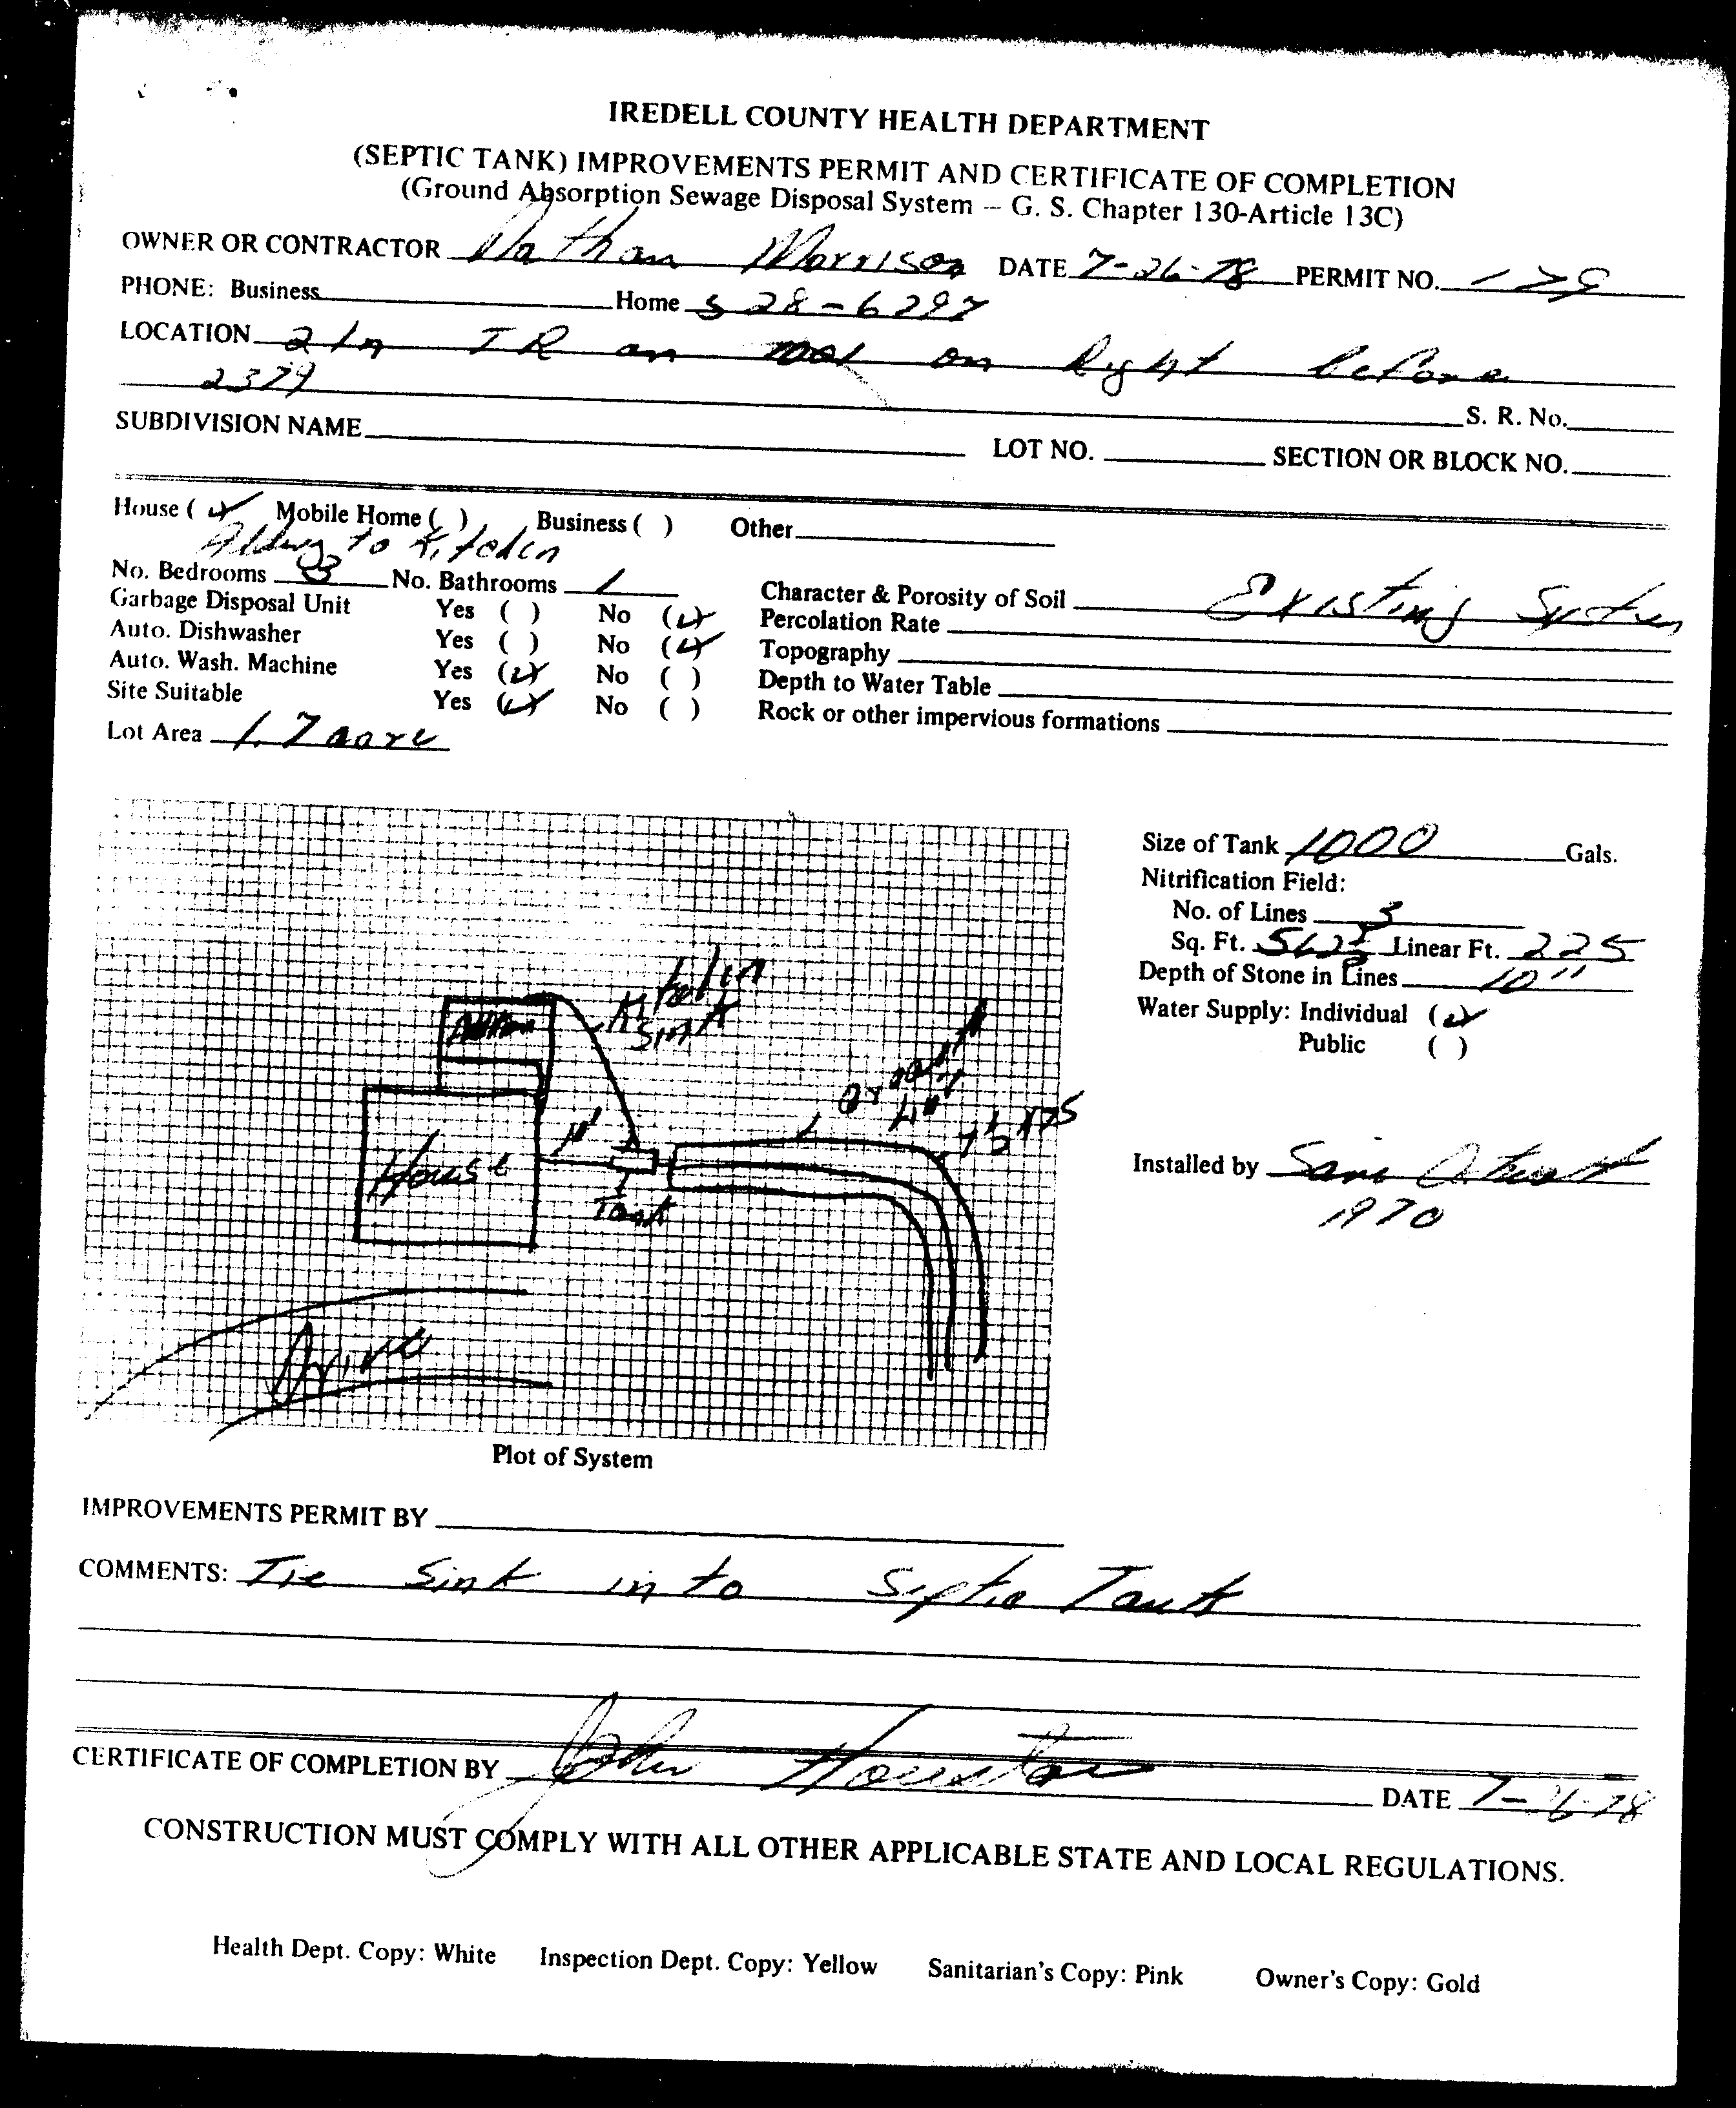 IREDELL COUNTY HEALTH DEPARTMENT
(SEPTIC TANK) IMPROVEMENTS PERMIT AND CERTIFICATE OF COMPLETION
(Ground Absorption Sewage Disposal System -- G. S. Chapter 130-Article 13C)
OWNER OR CONTRACTOR Nathan Morrison DATE 7-26-78 PERMIT NO.
PHONE: Business Home 528-6297
LOCATION 21 on Right before
2379
S. R. No.
SUBDIVISION NAME LOT NO. SECTION OR BLOCK NO.
House (✓) Mobile Home ( ) Business ( ) Other
to Kitchen
No. Bedrooms 3 No. Bathrooms 1 Character & Porosity of Soil Existing System
Garbage Disposal Unit Yes ( ) No (✓) Percolation Rate
Auto. Dishwasher Yes ( ) No (✓) Topography
Auto. Wash. Machine Yes (✓) No ( ) Depth to Water Table
Site Suitable Yes (✓) No ( ) Rock or other impervious formations
Lot Area 1.7 acre
Size of Tank 1000 Gals.
Nitrification Field:
No. of Lines 3
Sq. Ft. Linear Ft. 225
Depth of Stone in Lines 10"
Water Supply: Individual (✓)
Public ( )
Installed by Sam
1970
Kitchin
Sink
House
Tank
Drive
Plot of System
IMPROVEMENTS PERMIT BY
COMMENTS: Tie Sink into Septic Tank
CERTIFICATE OF COMPLETION BY John Houston DATE 7-26-78
CONSTRUCTION MUST COMPLY WITH ALL OTHER APPLICABLE STATE AND LOCAL REGULATIONS.
Health Dept. Copy: White Inspection Dept. Copy: Yellow Sanitarian's Copy: Pink Owner's Copy: Gold